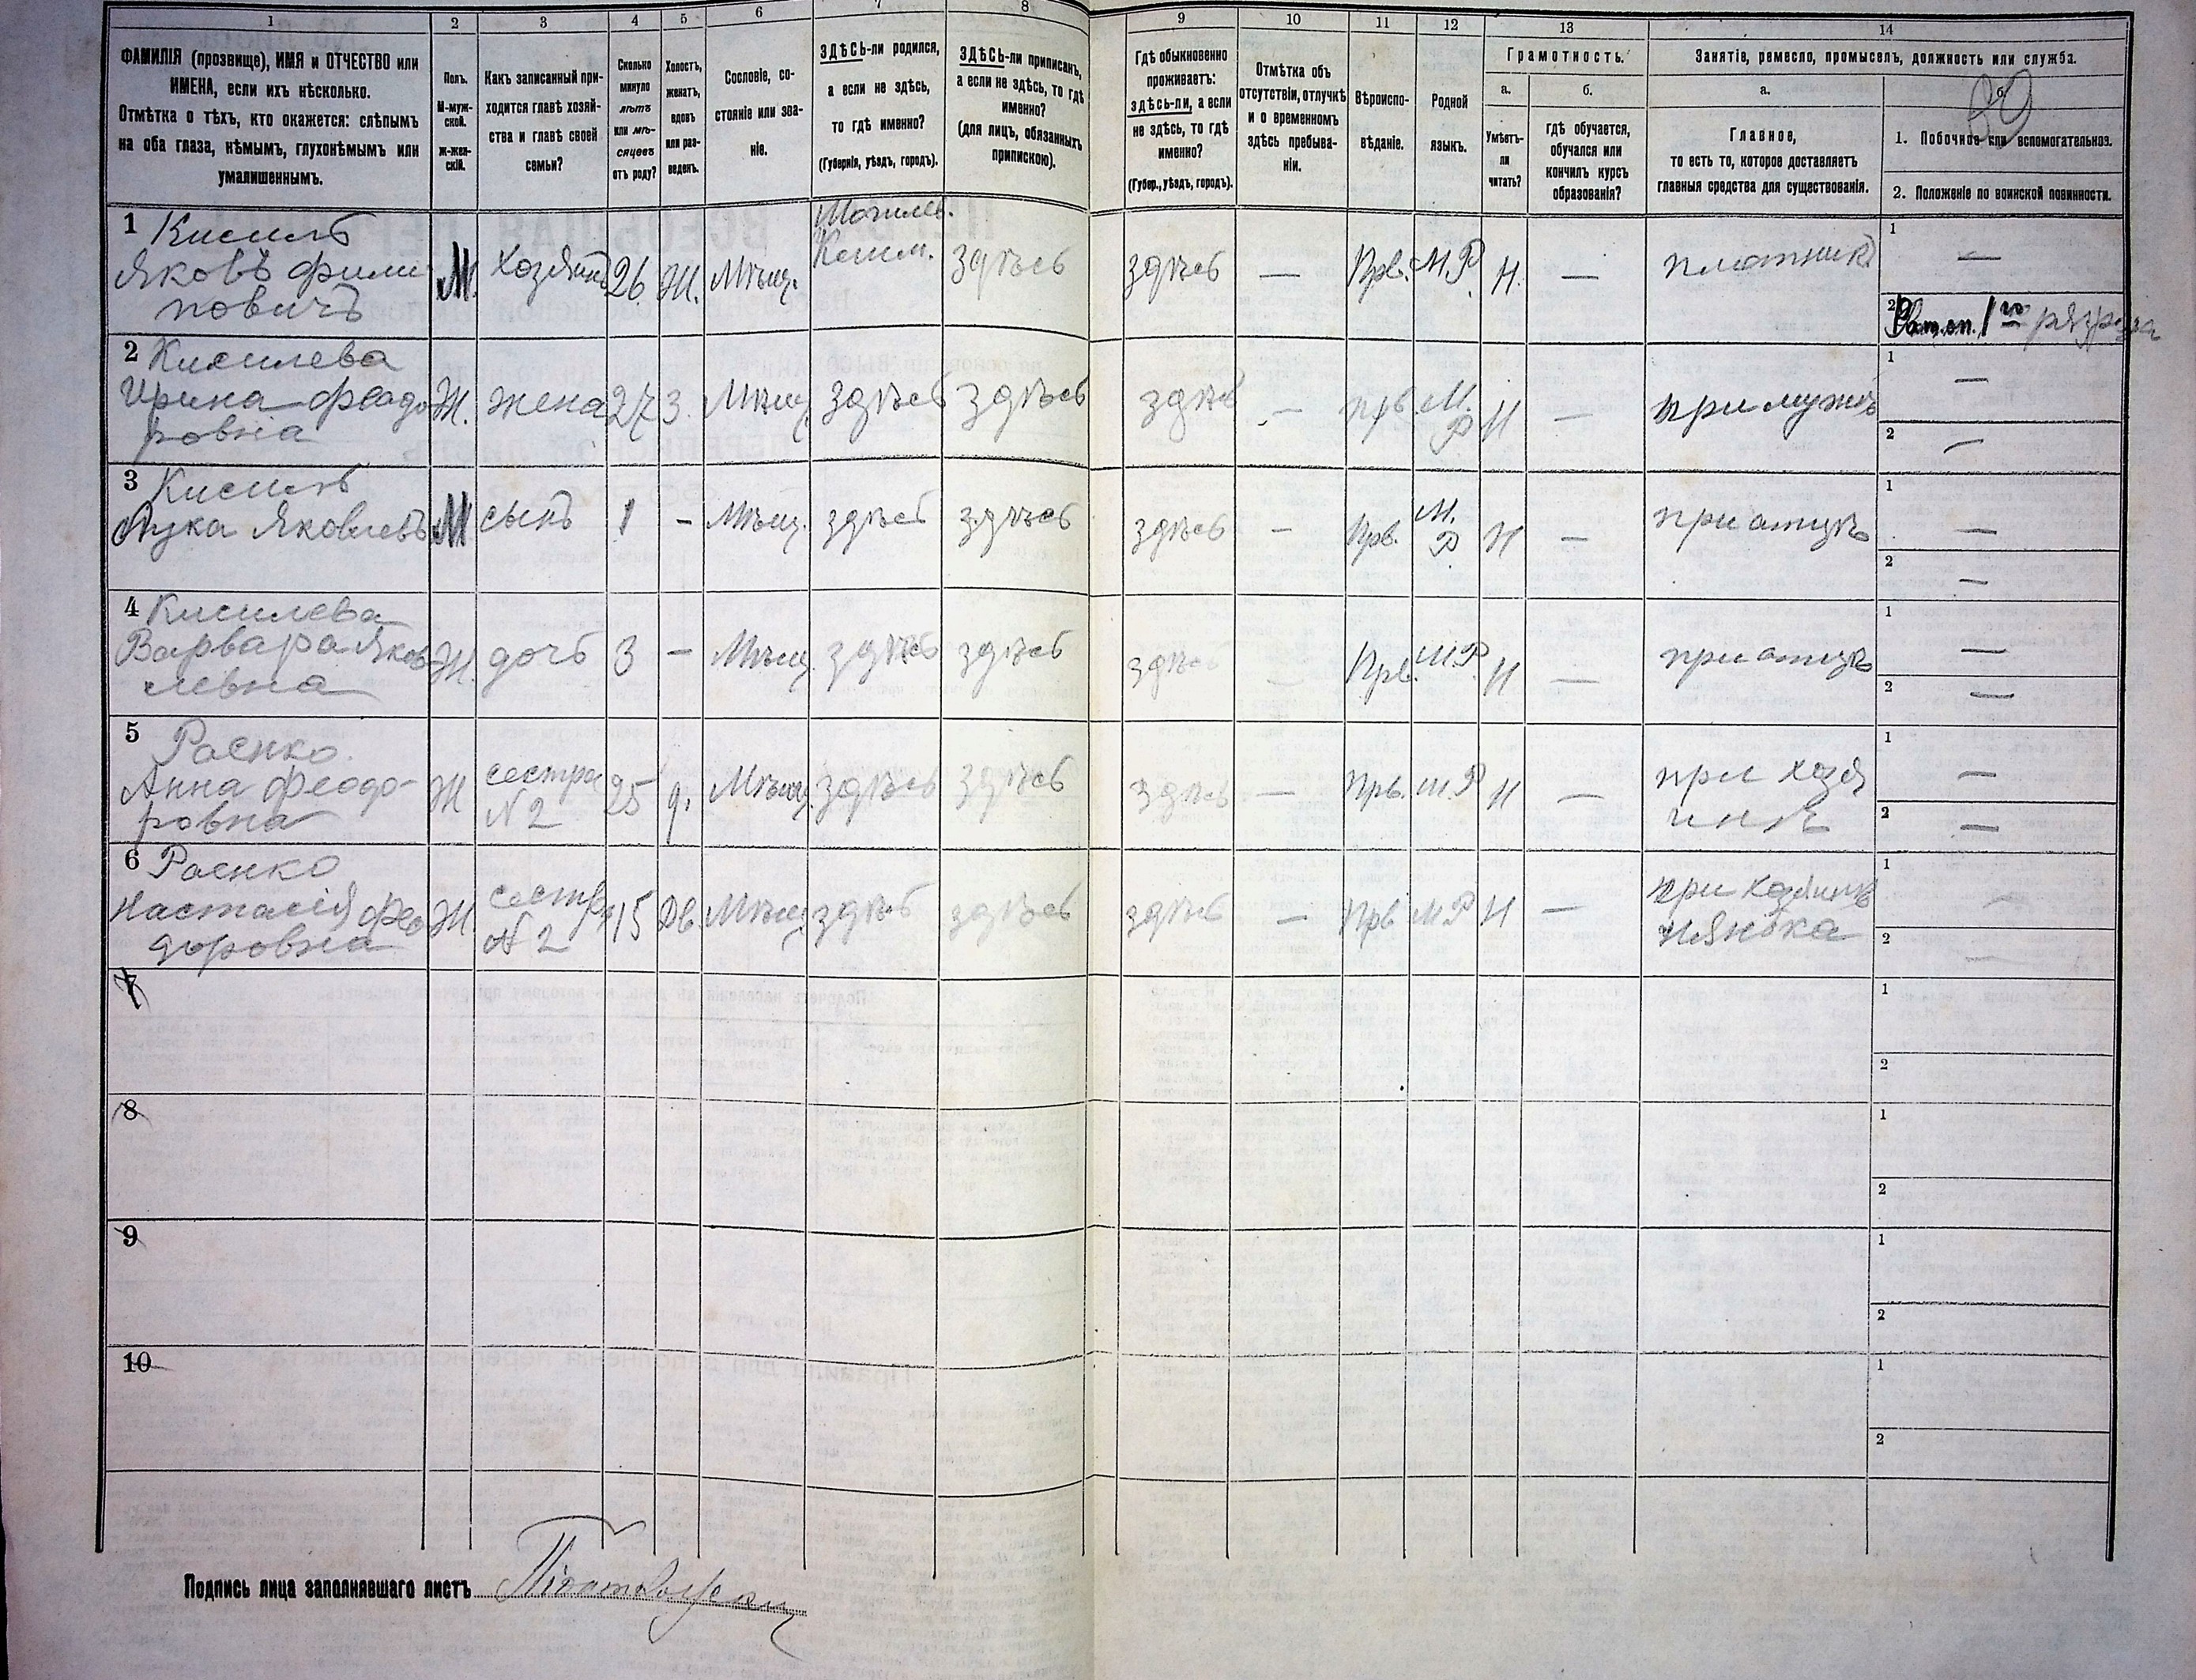 1 2 3 4 5 6 7 8 9 10 11 12 13 14
ФАМИЛІЯ (прозвище), ИМЯ и ОТЧЕСТВО или
ИМЕНА, если ихъ нѣсколько.
Отмѣтка о тѣхъ, кто окажется: слѣпымъ
на оба глаза, нѣмымъ, глухонѣмымъ или
умалишеннымъ.
Полъ.
М-муж-
ской.
ж-жен-
скій.
Какъ записанный при-
ходится главѣ хозяй-
ства и главѣ своей
семьи?
Сколько
минуло
лѣтъ
или мѣ-
сяцевъ
отъ роду?
Холостъ,
женатъ,
вдовъ
или раз-
веденъ.
Сословіе, со-
стояніе или зва-
ніе.
ЗДѢСЬ-ли родился,
а если не здѣсь,
то гдѣ именно?
(Губернія, уѣздъ, городъ).
ЗДѢСЬ-ли приписанъ,
а если не здѣсь, то гдѣ
именно?
(для лицъ, обязанныхъ
припискою).
Гдѣ обыкновенно
проживаетъ:
здѣсь-ли, а если
не здѣсь, то гдѣ
именно?
(Губер., уѣздъ, городъ).
Отмѣтка объ
отсутствіи, отлучкѣ
и о временномъ
здѣсь пребыва-
ніи.
Вѣроиспо-
вѣданіе.
Родной
языкъ.
Грамотность.
а.
Умѣетъ-
ли
читать?
б.
гдѣ обучается,
обучался или
кончилъ курсъ
образованія?
Занятіе, ремесло, промыселъ, должность или служба.
а.
Главное,
то есть то, которое доставляетъ
главныя средства для существованія.
б.
1. Побочное или вспомогательное.
2. Положеніе по воинской повинности.
1 Кисиль
Яковъ Фили
повичъ
М. Хозяинъ 26 Ж. Мѣщ.
здѣсь здѣсь — Прв. М.Р. Н. — плотникъ
1 —
2 1го разряда
2 Кисилева
Ирина Феодо
ровна
Ж. жена 27 З. Мѣщ. здѣсь здѣсь здѣсь — прв М.
Р Н — при мужѣ
1 —
2 —
3 Кисиль
Лука Яковлевъ
М сынъ 1 - Мѣщ. здѣсь здѣсь здѣсь — Прв. М.
Р Н — при отцѣ
1 —
2 —
4 Кисилева
Варвара Яков
левна
Ж. дочь 3 - Мѣщ. здѣсь здѣсь здѣсь — Прв. М.Р. Н — при отцѣ
1 —
2 —
5 Раенко
Анна Феодо-
ровна
Ж сестра
№2
25 д. Мѣщ. здѣсь здѣсь здѣсь — Прв. М.Р Н — при хозя
инѣ
1 —
2 —
6 Раенко
Настасія Фео
доровна
Ж сестра
№2
15 Дв. Мѣщ здѣсь здѣсь здѣсь — Прв М Р Н — при хозяинѣ
нянька
1 —
2 —
7
1
2
8
1
2
9
1
2
10
1
2
Подпись лица заполнявшаго листъ